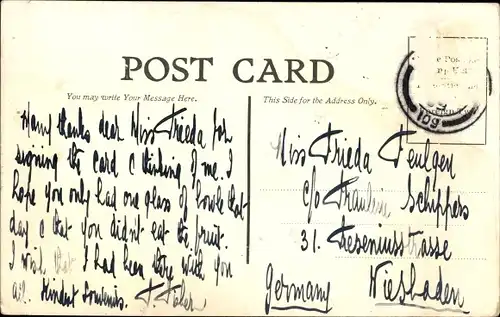 POST CARD
You may write Your Message Here.
This Side for the Address Only.
Many thanks dear Miss Frieda for
signing the card & thinking of me. I
hope you only had one glass of bowle that
day & that you didn't eat the fruit.
I wish that I had been there with you
all. Kindest Souvenirs.
Miss Frieda Feulgen
c/o Fräulein Schippers
31. Freseniusstrasse
Germany Wiesbaden
109